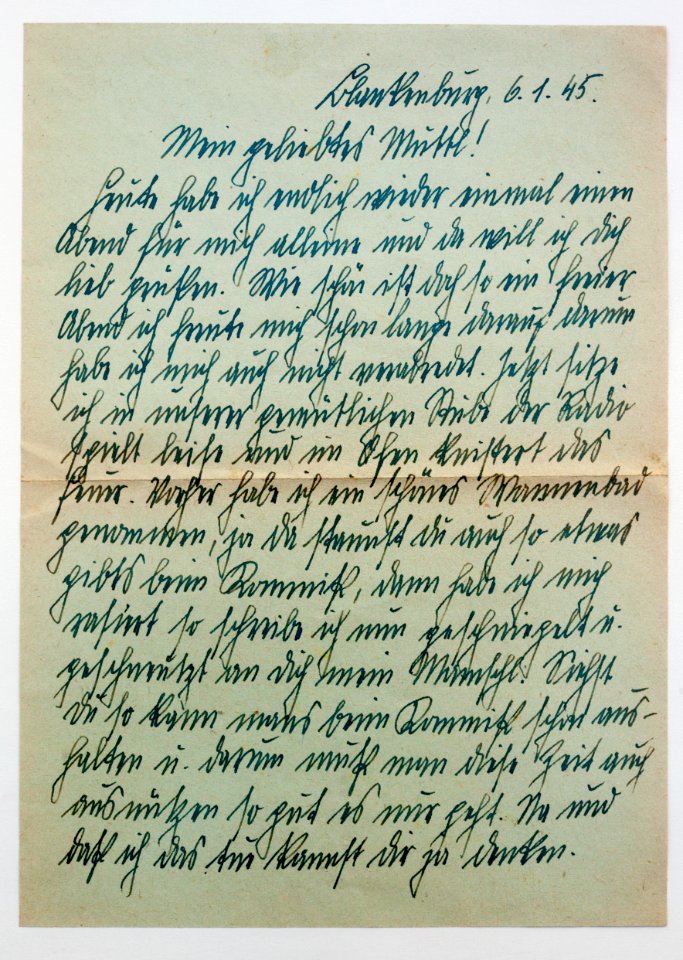 Blankenburg, 6.1.45.
Mein geliebtes Muttl!
Heute habe ich endlich wieder einmal einen
Abend für mich alleine und da will ich dich
lieb grüßen. Wie schön ist doch so ein freier
Abend ich freute mich schon lange darauf darum
habe ich mich auch nicht verabredet. Jetzt sitze
ich in unserer gemütlichen Stube der Radio
spielt leise und im Ofen knistert das
Feuer. Vorher habe ich ein schönes Wannenbad
genommen, ja da staunst du auch so etwas
gibts beim Kommiß, dann habe ich mich
rasiert so schreibe ich nun geschniegelt u.
geschneutzt an dich mein Mamschl. Siehst
du so kann mans beim Kommiß schon aus-
halten u. darum muß man diese Zeit auch
ausnützen so gut es nur geht. Na und
daß ich das tue kannst dir ja denken.